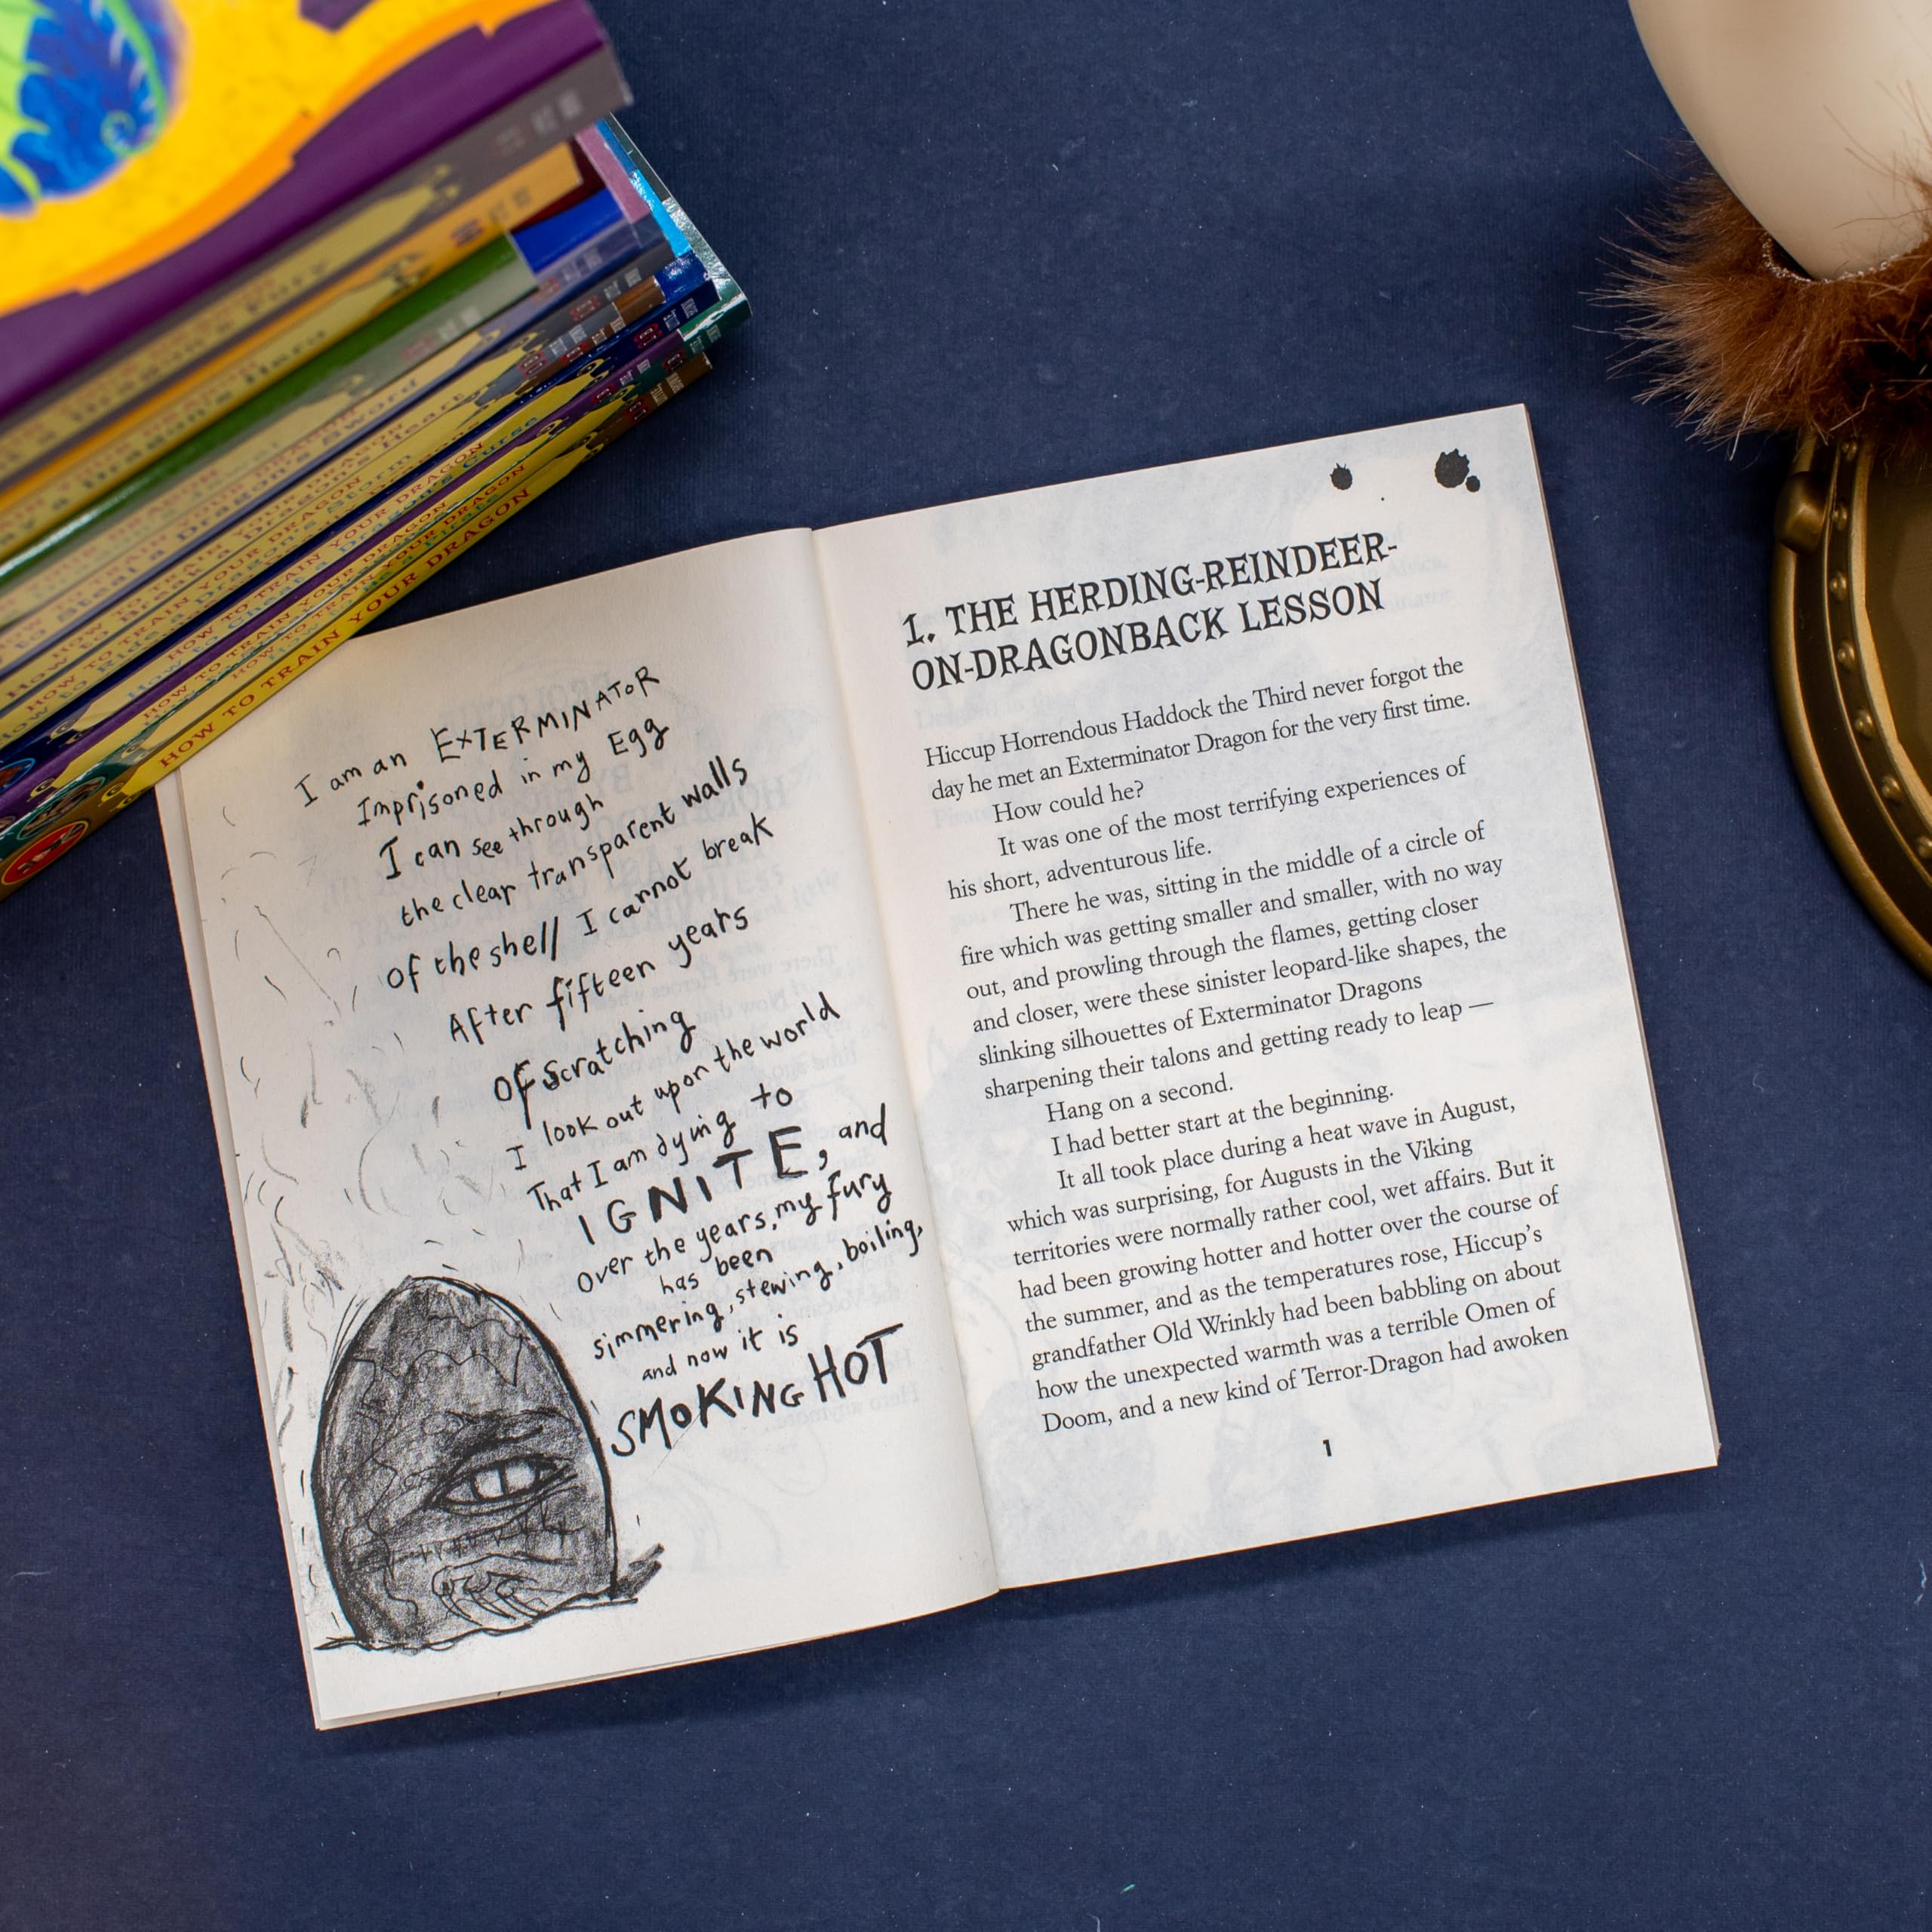 HOW TO TRAIN YOUR DRAGON
I am an EXTERMINATOR
Imprisoned in my Egg
I can see through
the clear transparent walls
of the shell I cannot break
After fifteen years
of scratching
I look out upon the world
That I am dying to
IGNITE, and
over the years, my fury
has been
simmering, stewing, boiling,
and now it is
SMOKING HOT
1. THE HERDING-REINDEER-
ON-DRAGONBACK LESSON
Hiccup Horrendous Haddock the Third never forgot the
day he met an Exterminator Dragon for the very first time.
How could he?
It was one of the most terrifying experiences of
his short, adventurous life.
There he was, sitting in the middle of a circle of
fire which was getting smaller and smaller, with no way
out, and prowling through the flames, getting closer
and closer, were these sinister leopard-like shapes, the
slinking silhouettes of Exterminator Dragons
sharpening their talons and getting ready to leap —
Hang on a second.
I had better start at the beginning.
It all took place during a heat wave in August,
which was surprising, for Augusts in the Viking
territories were normally rather cool, wet affairs. But it
had been growing hotter and hotter over the course of
the summer, and as the temperatures rose, Hiccup's
grandfather Old Wrinkly had been babbling on about
how the unexpected warmth was a terrible Omen of
Doom, and a new kind of Terror-Dragon had awoken
1